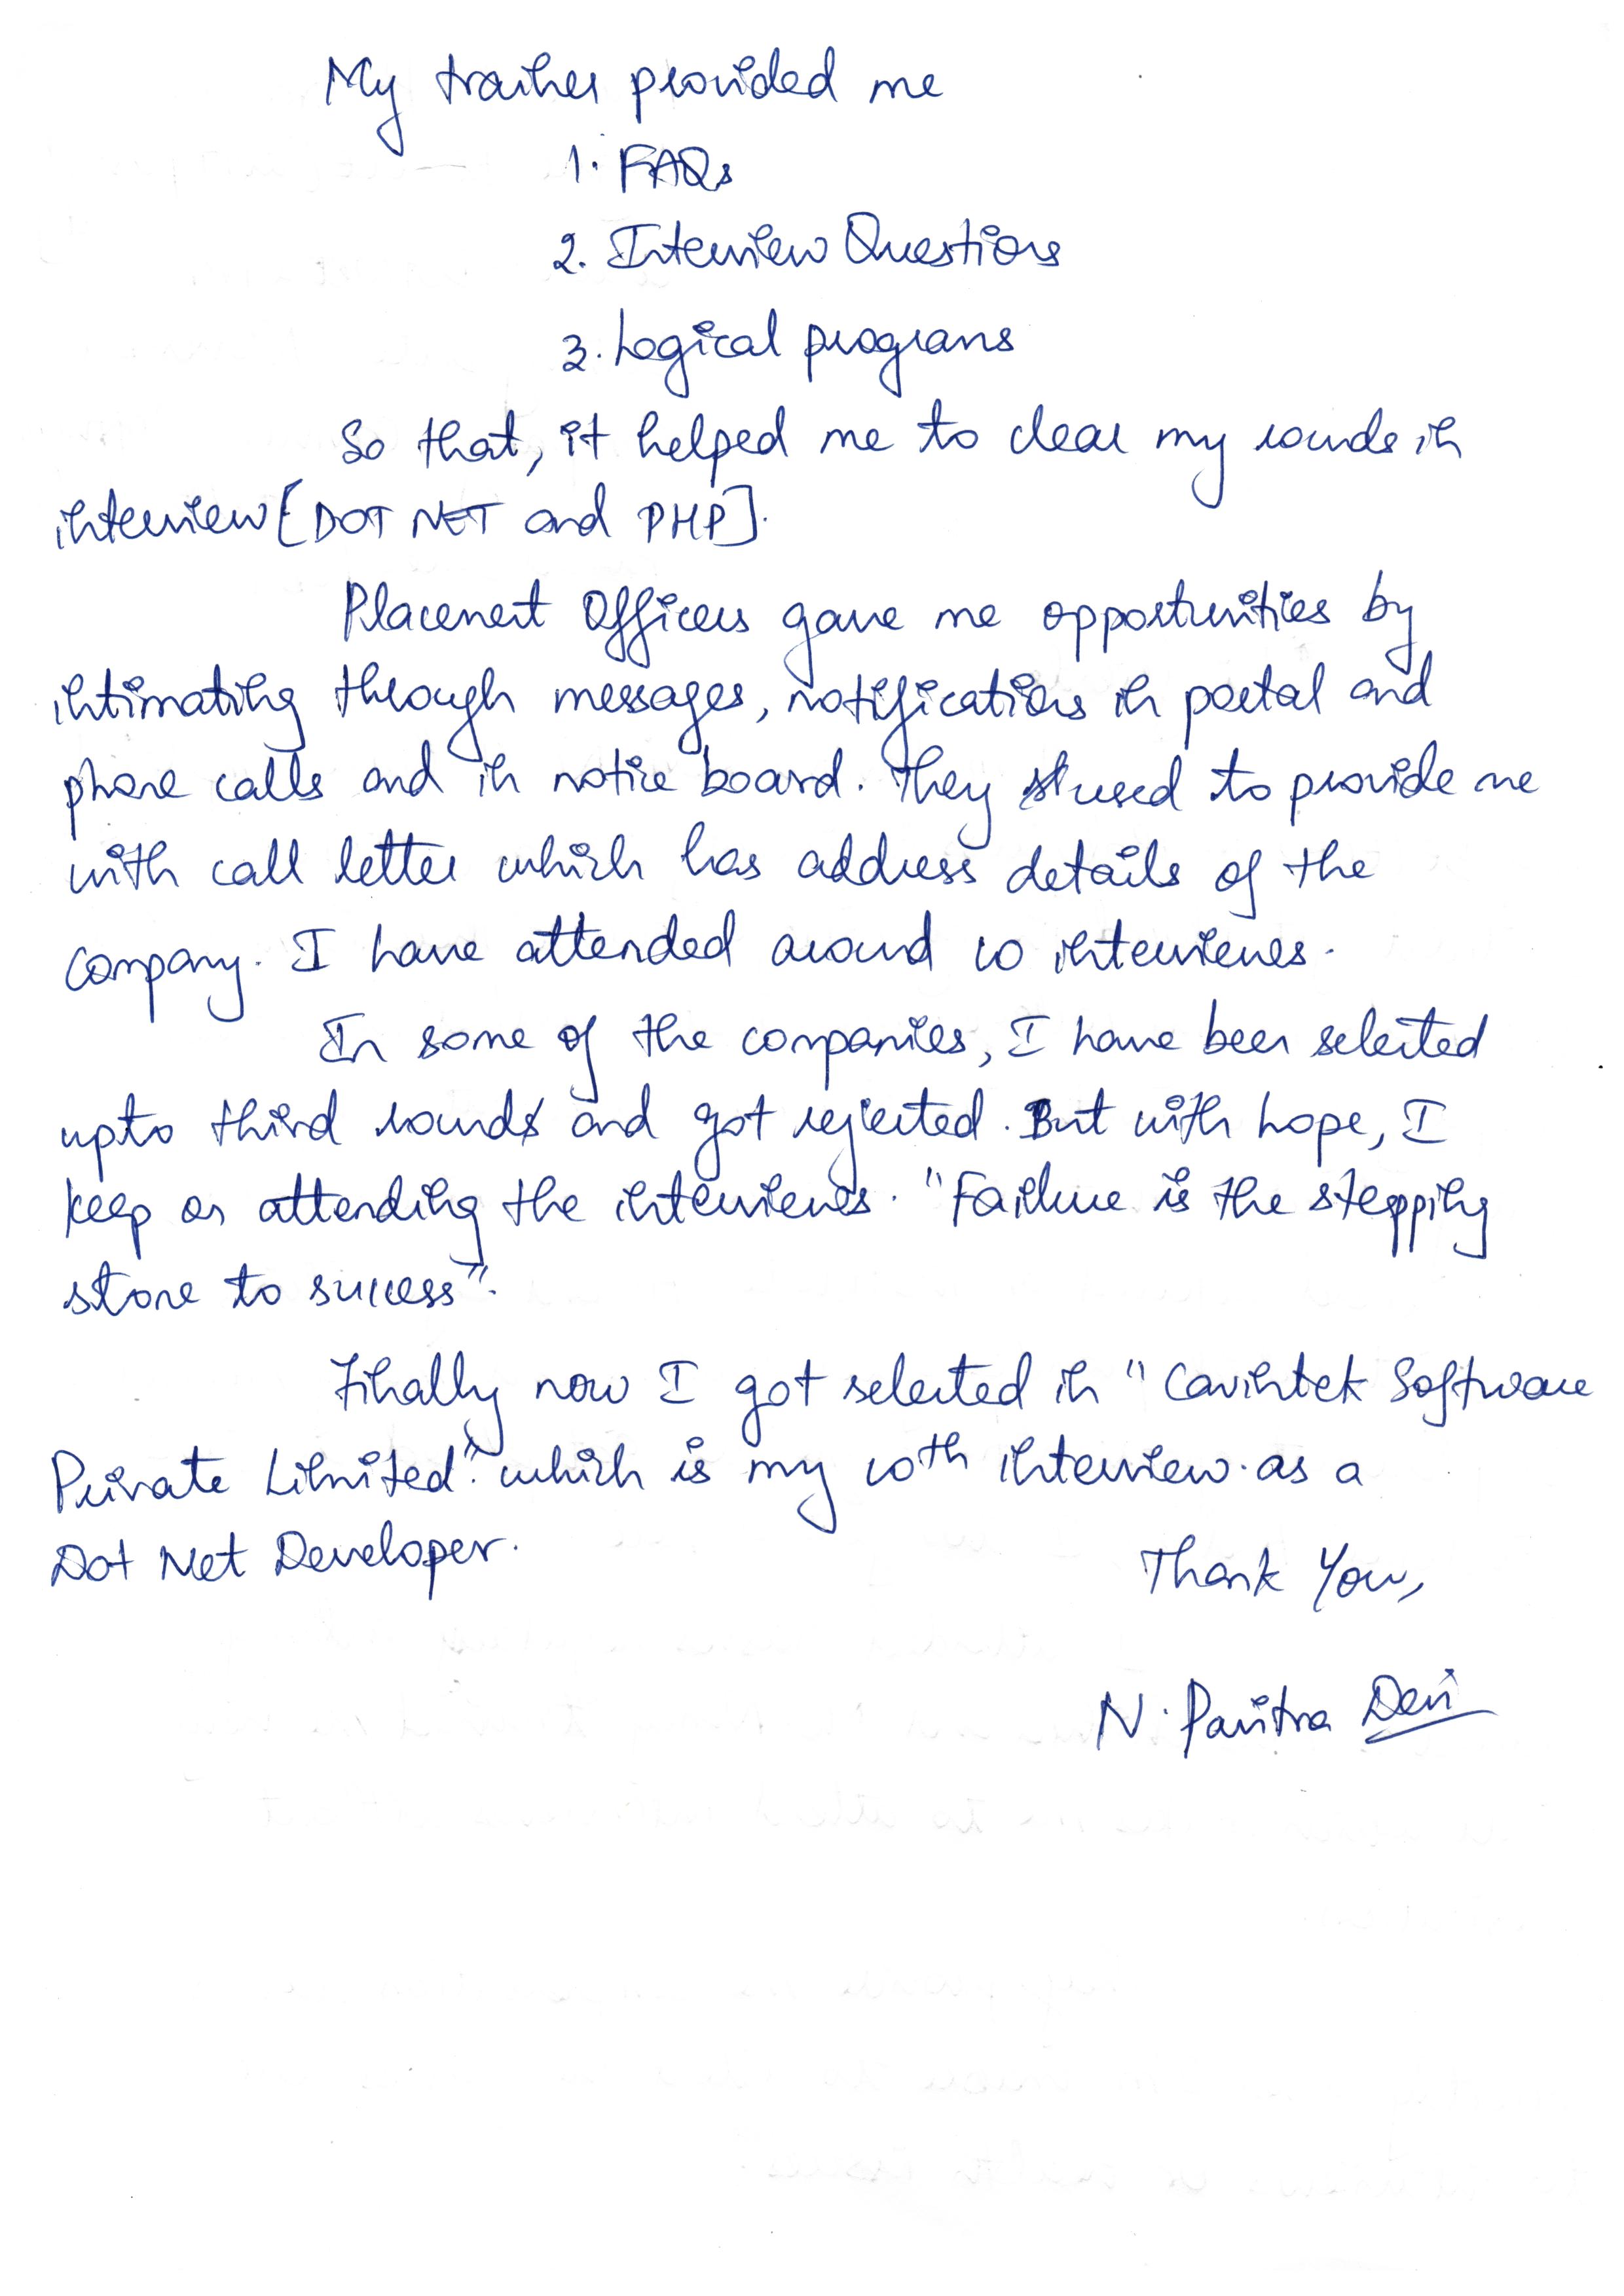 My trainer provided me
1. FAQs
2. Interview Questions
3. Logical programs
So that, it helped me to clear my rounds in
interview [DOT NET and PHP].
Placement Officers gave me opportunities by
intimating through messages, notifications in portal and
phone calls and in notice board. They used to provide me
with call letter which has address details of the
company. I have attended around 10 interviews.
In some of the companies, I have been selected
upto third round and got rejected. But with hope, I
keep on attending the interviews. "Failure is the stepping
stone to success".
Finally now I got selected in "Cavintek Software
Private Limited". which is my 10th interview. as a
Dot Net Developer.
Thank You,
N. Pavitra Devi